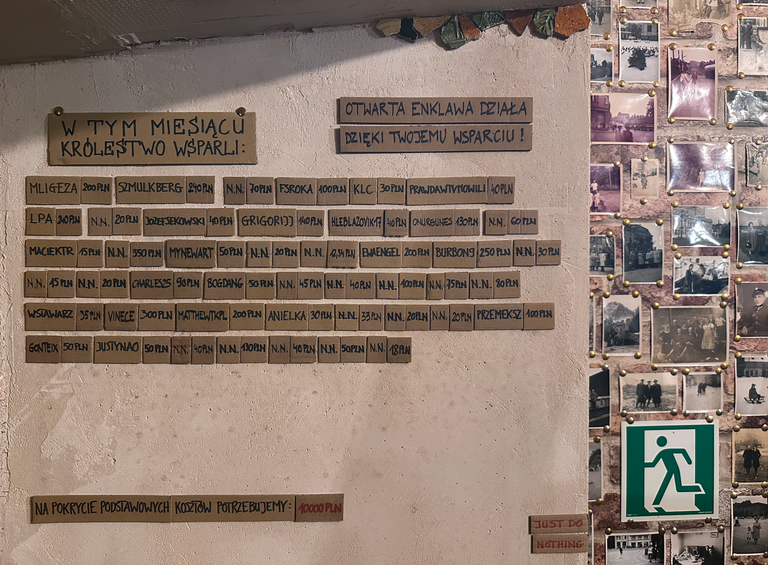 W TYM MIESIĄCU
KRÓLESTWO WSPARLI:
OTWARTA ENKLAWA DZIAŁA
DZIĘKI TWOJEMU WSPARCIU!
MLIGEZA 200PLN SZMULKBERG 240PLN N.N. 70PLN F3ROKA 100PLN KLC 30PLN PRAWDAWTVMOWILI 40PLN
LPA 210PLN N.N. 20PLN JOZEFSEKOWSKI 40PLN GRIGORIJJ 140PLN HLEBLAZOVIK17 40PLN ONURGUNES 130PLN N.N. 60PLN
MACIEKTR 15PLN N.N. 550PLN MYNEWART 50PLN N.N. 20PLN N.N. EWAENGEL 200PLN BURBON9 250PLN N.N. 30PLN
N.N. 15PLN N.N. 20PLN CHARLES25 90PLN BOGDANG 50PLN N.N. 45PLN N.N. 40PLN N.N. 100PLN N.N. 75PLN N.N. 80PLN
WSTAWARZ 35PLN VINECE 300PLN MATTHEWTKPL 200PLN ANIELKA 30PLN N.N. 33PLN N.N. 20PLN N.N. 20PLN PRZEMEKSZ 100PLN
GONTEIX 50PLN JUSTYNAO 50PLN N.N. 40PLN N.N. 130PLN N.N. 40PLN N.N. 50PLN N.N. 18PLN
NA POKRYCIE PODSTAWOWYCH KOSZTÓW POTRZEBUJEMY: 10000PLN
JUST DO
NOTHING